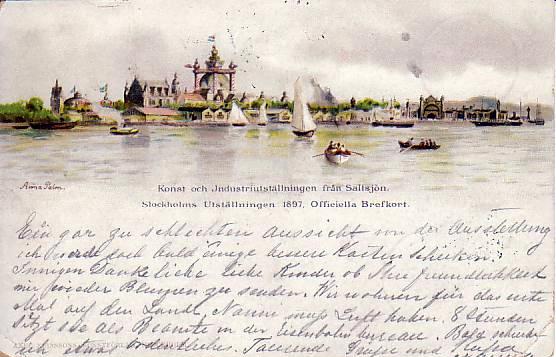 Anna Palm.
Konst och Industriutställningen från Saltsjön.
Stockholms Utställningen 1897, Officiella Brefkort.
Ein gar zu schlechten Aussicht von der Ausstellung
ich werde doch bald einige bessere Karten schicken.
Innigen Dank liebe liebe Kinder ob Ihre freundlichkeit
mir wieder Blumen zu senden. Wir wohnen für das erste
Mal auf den Lande, Nanna muss Luft haben. 8 Stunden
Sitzt sie als Beamte in der Eisenbahn bureau. Bald schreibe
ich etwas ordentliches. Tausende Grüsse und